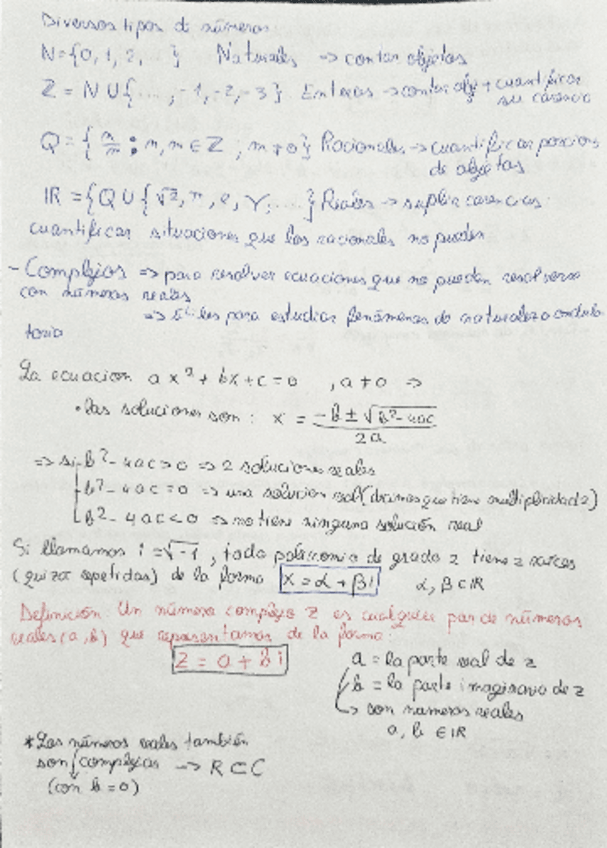 Diversos tipos de números
N = {0, 1, 2, } Naturales → contar objetos
Z = N U {..., -1, -2, -3} Enteros → contar obj + cuantificar
su carencia
Q = { n/m : n, m ∈ Z ; m ≠ 0} Racionales → cuantificar porcions
de objetos
IR = {Q U {√2, π, e, γ, ...} Reales → suplir carencias
cuantificar situaciones que los racionales no pueden
- Complejos => para resolver ecuaciones que no pueden resolverse
con números reales
=> útiles para estudiar fenómenos de naturaleza ondula
toria
La ecuacion ax² + bx + c = 0 , a ≠ 0 =>
• las soluciones son : x = -b ± √b² - 4ac / 2a
=> si b² - 4ac > 0 => 2 soluciones reales
b² - 4ac = 0 => una solucion real (decimos que tiene multiplicidad 2)
b² - 4ac < 0 => no tiene ninguna solución real
Si llamamos i = √-1 , todo polinomio de grado 2 tiene 2 raíces
(quizas repetidas) de la forma x = α + βi α, β ∈ IR
Definición: Un número complejo z es cualquier par de números
reales (a, b) que representamos de la forma:
z = a + bi
a = la parte real de z
b = la parte imaginaria de z
→ son numeros reales
a, b ∈ IR
* Los números reales también
son complejos → R ⊂ C
(con b = 0)